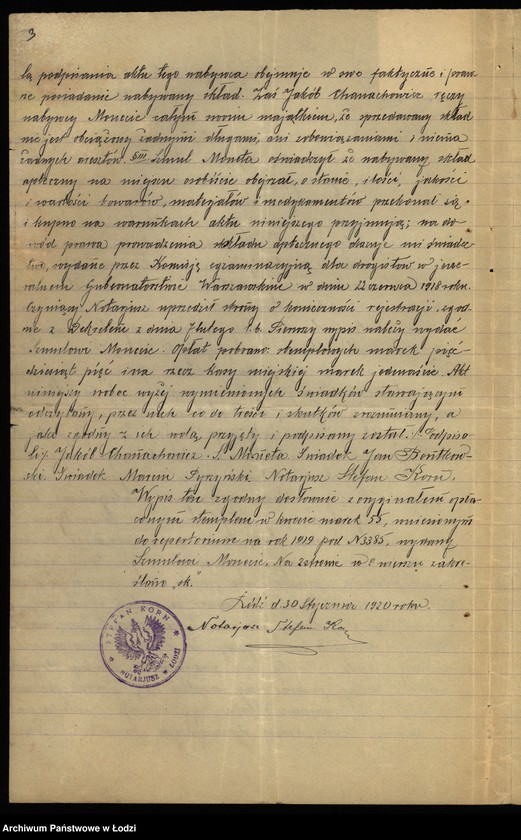 3
lą podpisania aktu tego nabywca obejmuje w swe faktyczne i praw-
ne posiadanie nabywany skład. Zaś Jakób Chanachowicz ręczy
nabywcy Moncie całym swoim majątkiem, że sprzedawany skład
nie jest obciążony żadnymi długami, ani zobowiązaniami i niema
żadnych aresztów. § III Szmul Moneta oświadczył że nabywany skład
apteczny na miejscu osobiście obejrzał, o stanie, ilości, jakości
i wartości towarów, materjałów i medykamentów przekonał się
i kupno na warunkach aktu niniejszego przyjmuje; na do-
wód prawa prowadzenia składu aptecznego okazuje mi świadec-
two, wydane przez Komisję egzaminacyjną dla drogistów w jene-
ralnem Gubernatorstwie Warszawskiem w dniu 22 czerwca 1918 roku.
Czyniący Notarjusz uprzedził strony o konieczności rejestracji, zgod-
nie z Dekretem z dnia 7 lutego r.b. Pierwszy wypis należy wydać
Szmulowi Monecie. Opłat pobrano: stemplowych marek pięć-
dziesiąt pięć i na rzecz kasy miejskiej marek jedenaście. Akt
niniejszy wobec wyżej wymienionych świadków stawającym
odczytany, przez nich co do treści i skutków zrozumiany, a
jako zgodny z ich wolą przyjęty i podpisany został. /: Podpisa-
li:/ Jakób Chanachowicz. S. Moneta Świadek Jan Bentkow-
ski. Świadek Marcin Pyrzyński Notarjusz Stefan Korn.
Wypis ten zgodny dosłownie z oryginałem opła-
conym stemplem w kwocie marek 55, wniesionym
do repertorium na rok 1919 pod N 3385, wydany
Szmulowi Monecie. Na 2 stronie w 8 wierszu zakre-
ślono „ok."
Łódź d. 30 Stycznia 1920 roku.
Notarjusz Stefan Korn
STEFAN KORN
NOTARJUSZ W ŁODZI
Archiwum Państwowe w Łodzi